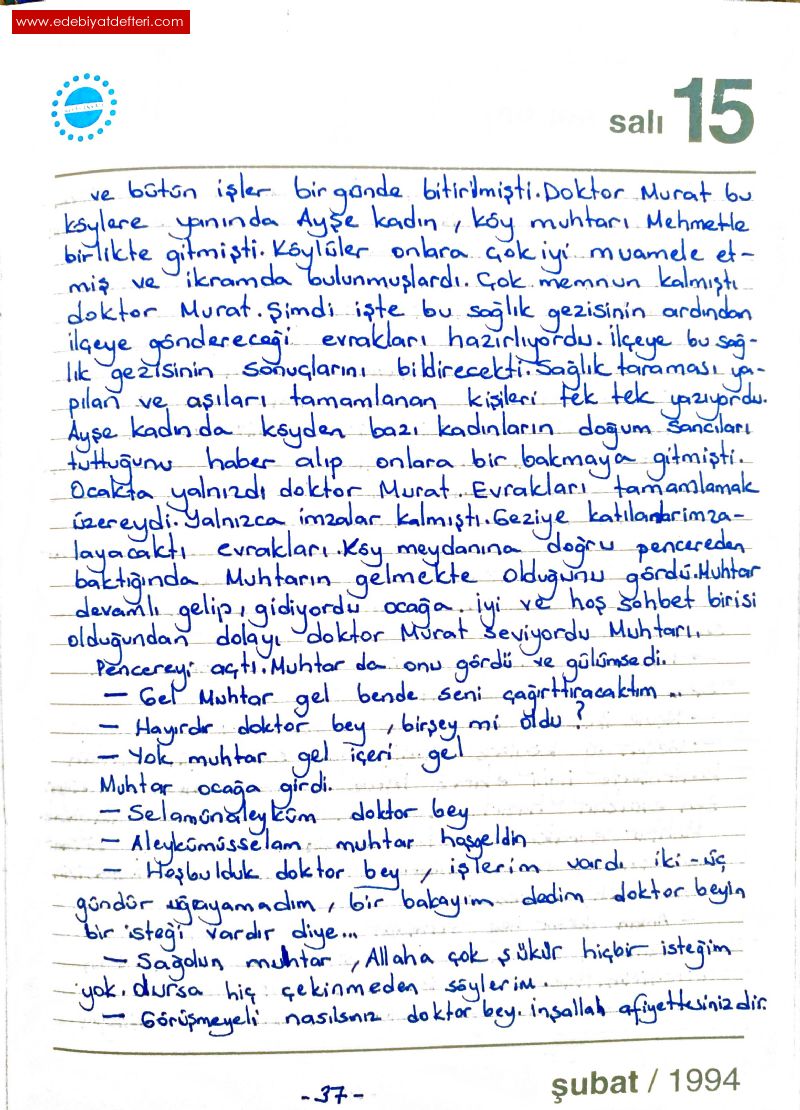 www.edebiyatdefteri.com
salı 15
ve bütün işler bir günde bitirilmişti. Doktor Murat bu
köylere yanında Ayşe kadın, köy muhtarı Mehmetle
birlikte gitmişti. Köylüler onlara çok iyi muamele et-
miş ve ikramda bulunmuşlardı. Çok memnun kalmıştı
doktor Murat. Şimdi işte bu sağlık gezisinin ardından
ilçeye göndereceği evrakları hazırlıyordu. İlçeye bu sağ-
lık gezisinin sonuçlarını bildirecekti. Sağlık taraması ya-
pılan ve aşıları tamamlanan kişileri tek tek yazıyordu.
Ayşe kadında köyden bazı kadınların doğum sancıları
tuttuğunu haber alıp onlara bir bakmaya gitmişti.
Ocakta yalnızdı doktor Murat. Evrakları tamamlamak
üzereydi. Yalnızca imzalar kalmıştı. Geziye katılanlar imza-
layacaktı evrakları. Köy meydanına doğru pencereden
baktığında Muhtarın gelmekte olduğunu gördü. Muhtar
devamlı gelip, gidiyordu ocağa. İyi ve hoş sohbet birisi
olduğundan dolayı doktor Murat seviyordu Muhtarı.
Pencereyi açtı. Muhtar da onu gördü ve gülümsedi.
— Gel Muhtar gel bende seni çağırttıracaktım ..
— Hayırdır doktor bey, birşey mi oldu?
— Yok muhtar gel içeri gel
Muhtar ocağa girdi.
— Selamünaleyküm doktor bey
— Aleykümüsselam muhtar hoşgeldin
— Hoşbulduk doktor bey, işlerim vardı iki-üç
gündür uğrayamadım, bir bakayım dedim doktor beyin
bir isteği vardır diye...
— Sağolun muhtar, Allaha çok şükür hiçbir isteğim
yok. Olursa hiç çekinmeden söylerim.
— Görüşmeyeli nasılsınız doktor bey. inşallah afiyettesinizdir.
-37-
şubat / 1994